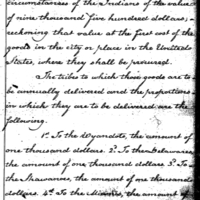 circumstances of the Indians of the value
of nine thousand five hundred dollars;
reckoning that value at the first cost of the
goods in the city or place in the United
States, where they shall be procured.
The tribes to which those goods are to
be annually delivered and the proportions
in which they are to be delivered are the
following.
1st To the Wyandots, the amount of
one thousand dollars. 2d To the Delawares
the amount of one thousand dollars 3d To
the Shawanees, the amount of one thousand
dollars. 4th To the Miamis, the amount of